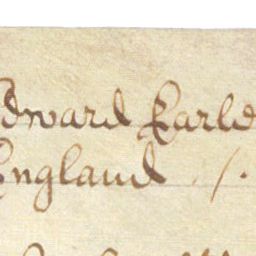 Edward Earle
England /.